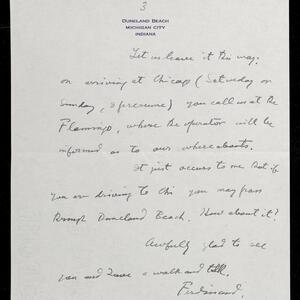 3
DUNELAND BEACH
MICHIGAN CITY
INDIANA
Let us leave it this way:
on arriving at Chicago (Saturday or
Sunday, I presume) you call us at the
Flamingo, where the operator will be
informed as to our whereabouts.
It just occurs to me that if
you are driving to Chi you may pass
through Duneland Beach. How about it?
Awfully glad to see
you and have a walk and talk.
Ferdinand.